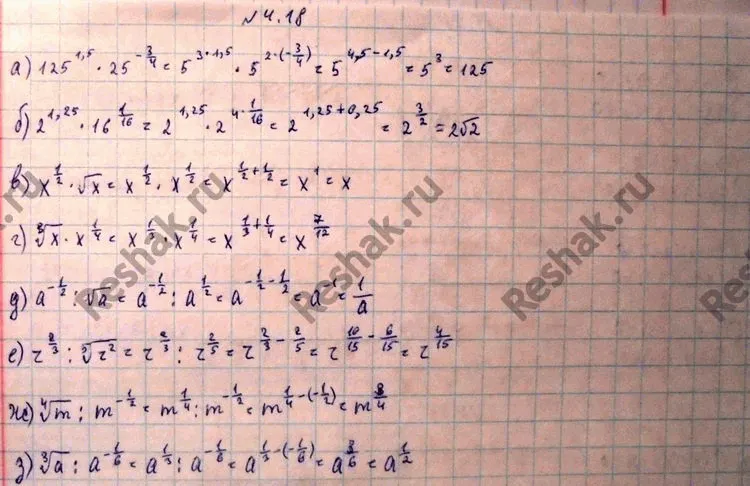 № 4.18
а) 125^{1,5} · 25^{-\frac{3}{4}} = 5^{3·1,5} · 5^{2·(-\frac{3}{4})} = 5^{4,5-1,5} = 5^3 = 125
б) 2^{1,25} · 16^{\frac{1}{16}} = 2^{1,25} · 2^{4·\frac{1}{16}} = 2^{1,25+0,25} = 2^{\frac{3}{2}} = 2√2
в) x^{\frac{1}{2}} · √x = x^{\frac{1}{2}} · x^{\frac{1}{2}} = x^{\frac{1}{2}+\frac{1}{2}} = x^1 = x
г) ∛x · x^{\frac{1}{4}} = x^{\frac{1}{3}} · x^{\frac{1}{4}} = x^{\frac{1}{3}+\frac{1}{4}} = x^{\frac{7}{12}}
д) a^{-\frac{1}{2}} : √a = a^{-\frac{1}{2}} : a^{\frac{1}{2}} = a^{-\frac{1}{2}-\frac{1}{2}} = a^{-1} = \frac{1}{a}
е) z^{\frac{2}{3}} : \sqrt[5]{z^2} = z^{\frac{2}{3}} : z^{\frac{2}{5}} = z^{\frac{2}{3}-\frac{2}{5}} = z^{\frac{10}{15}-\frac{6}{15}} = z^{\frac{4}{15}}
ж) ∜m : m^{-\frac{1}{2}} = m^{\frac{1}{4}} : m^{-\frac{1}{2}} = m^{\frac{1}{4}-(-\frac{1}{2})} = m^{\frac{3}{4}}
з) ∛a : a^{-\frac{1}{6}} = a^{\frac{1}{3}} : a^{-\frac{1}{6}} = a^{\frac{1}{3}-(-\frac{1}{6})} = a^{\frac{3}{6}} = a^{\frac{1}{2}}
Reshak.ru
Reshak.ru
Reshak.ru